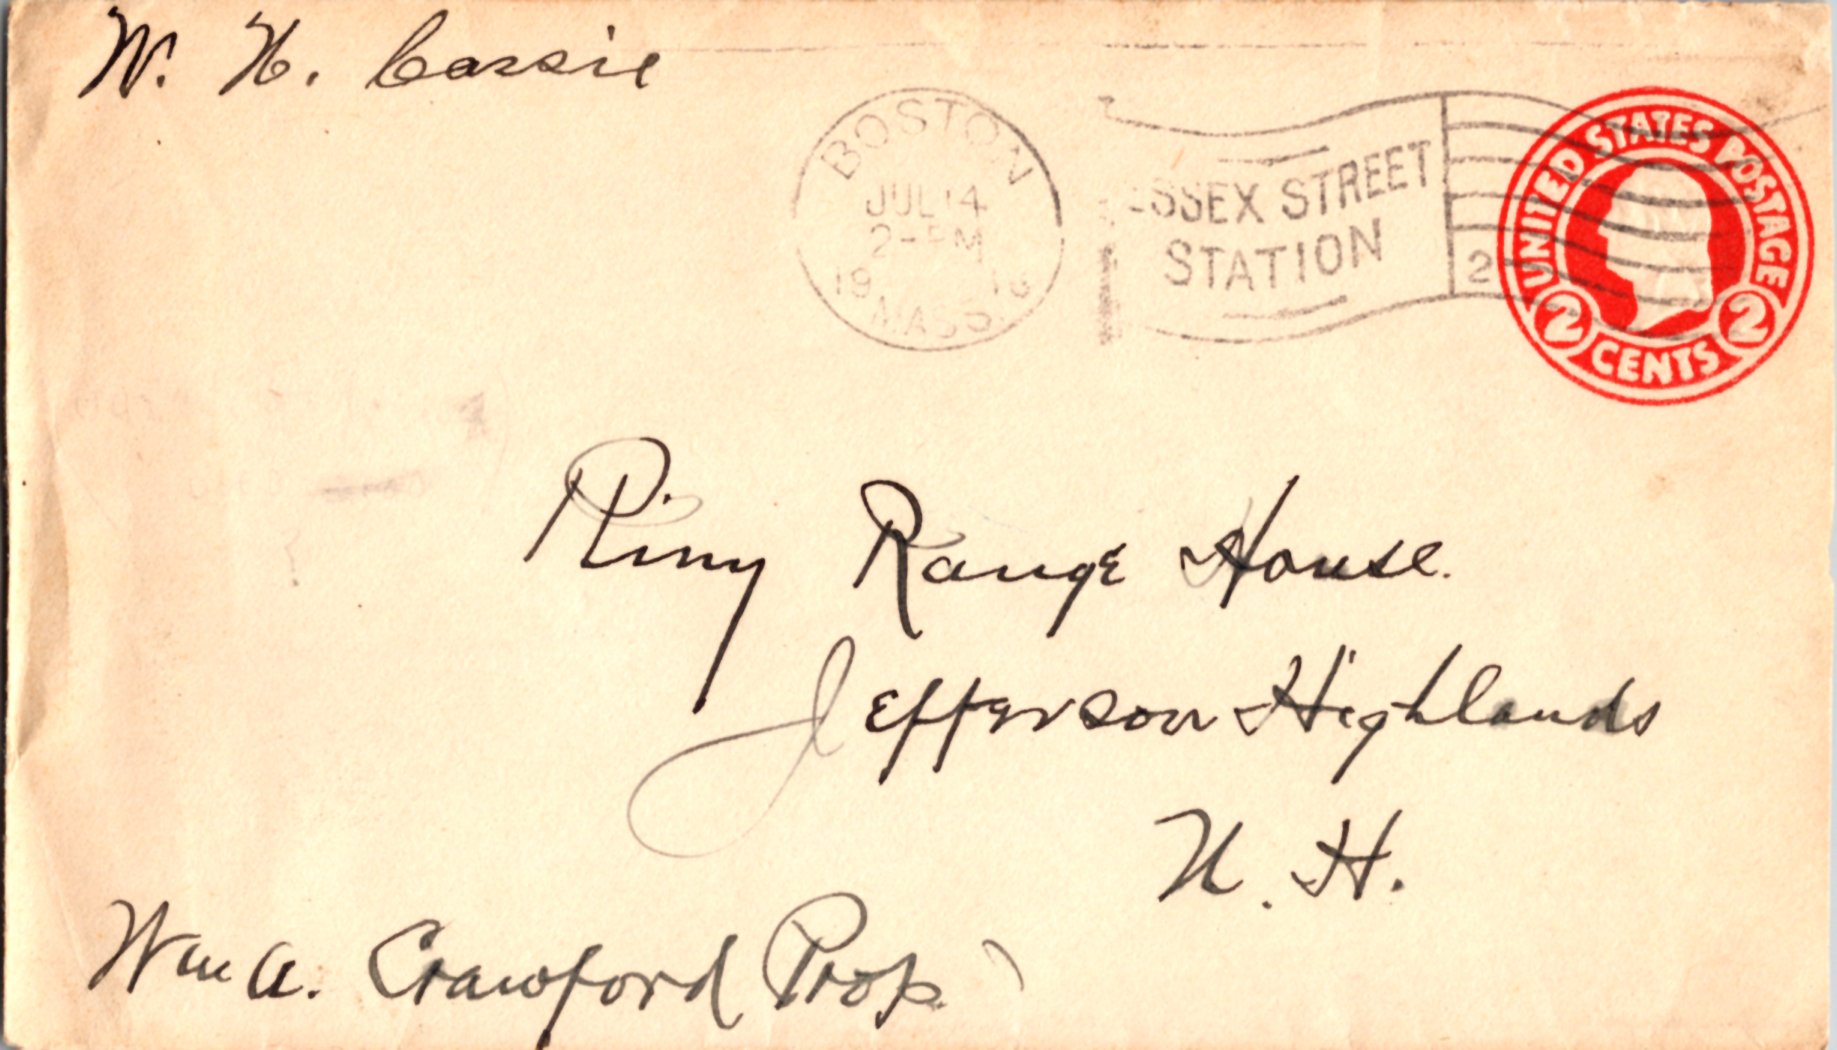 W. H. Cassie
BOSTON
JUL 14
2-PM
19
MASS.
ESSEX STREET
STATION
2
UNITED STATES POSTAGE
2 CENTS 2
Pliny Range House.
Jefferson Highlands
N. H.
Wm A. Crawford Prop.